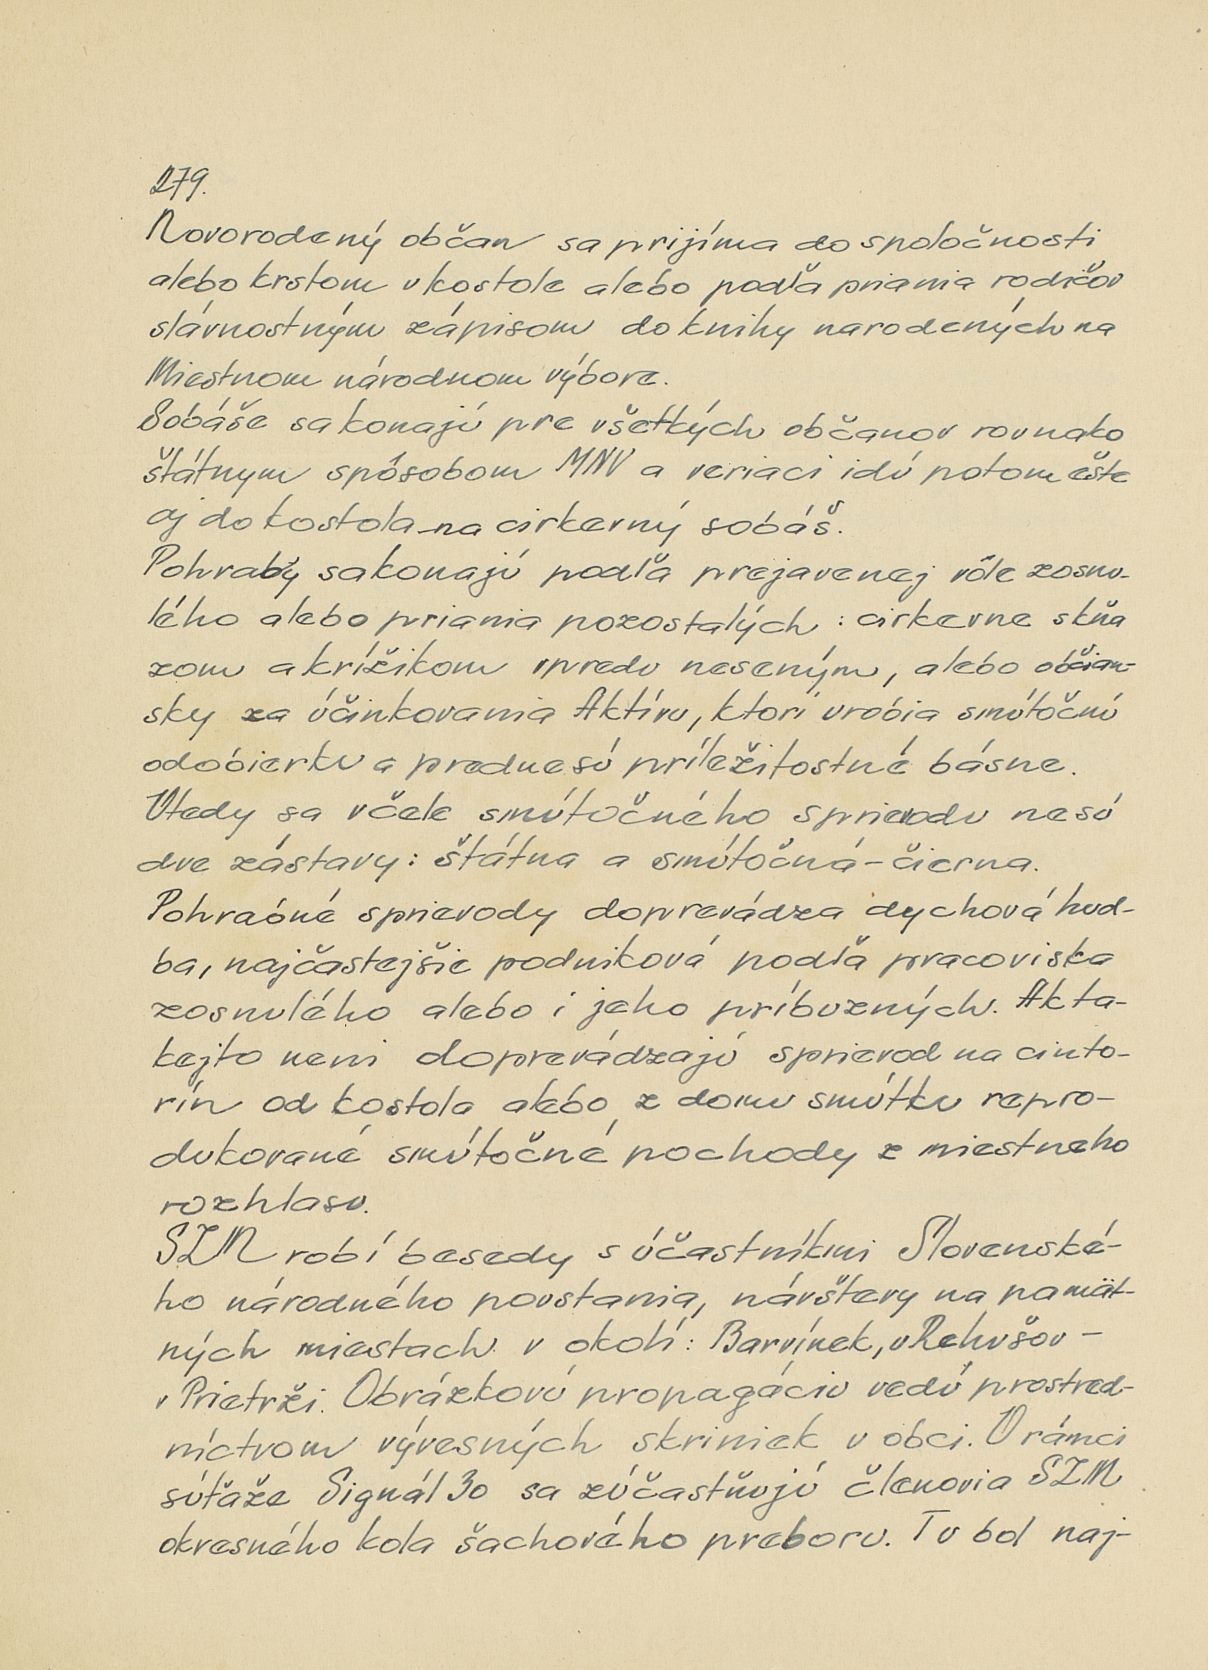 279.
Novorodený občan sa prijíma do spoločnosti
alebo krstom v kostole alebo podľa priania rodičov
slávnostným zápisom do knihy narodených na
Miestnom národnom výbore.
Sobáše sa konajú pre všetkých občanov rovnako
štátnym spôsobom MNV a veriaci idú potom ešte
aj do kostola na cirkevný sobáš.
Pohraby sa konajú podľa prejavenej vôle zosnu-
lého alebo priania pozostalých : cirkevne s kňa
zom a krížikom vpredu neseným, alebo občian-
sky za účinkovania Aktívu, ktorí urobia smútočnú
odobierku a prednesú príležitostné básne.
Vtedy sa v čele smútočného sprievodu nesú
dve zástavy: štátna a smútočná - čierna.
Pohrabné sprievody doprevádza dychová hud-
ba, najčastejšie podniková podľa pracoviska
zosnulého alebo i jeho príbuzných. Ak ta-
kejto neni doprevádzajú sprievod na cinto-
rín od kostola alebo z domu smútku repro-
dukované smútočné pochody z miestneho
rozhlasu.
SZM robí besedy s účastníkmi Slovenské-
ho národného povstania, návštevy na pamät-
ných miestach v okolí: Barvínek, v Rehušov -
v Prietrži. Obrázkovú propagáciu vedú prostred-
níctvom vývesných skriniek v obci. V rámci
súťaže Signál 30 sa zúčastňujú členovia SZM
okresného kola šachového preboru. Tu bol naj-